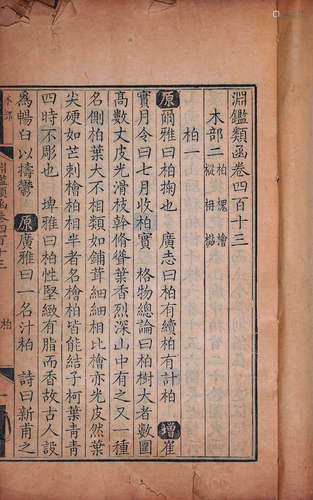 淵鑑類函卷四百十三
木部二 柏 槐 檜
樅 枏 楷
柏一
原爾雅曰柏椈也 廣志曰柏有續柏有計柏 增崔
實月令曰七月收柏實 格物總論曰柏樹大者數圍
高數丈皮光滑枝幹脩聳葉香烈深山中有之又一種
名側柏葉大不相類如鋪茸細細相比檜亦先皮然葉
尖硬如芒刺檜柏相半者名檜柏皆能結子柯葉青青
四時不彫也 埤雅曰柏性堅緻有脂而香故古人設
爲暢臼以擣鬱 原廣雅曰一名汁柏 詩曰新甫之
淵鑑類函卷四百十三 柏
木部